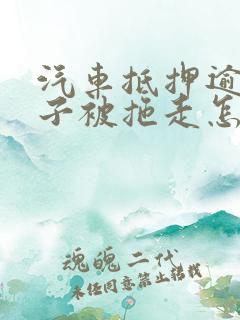 汽车抵押逾
子被拖走怎
魂魄二代
未经同意禁止转载